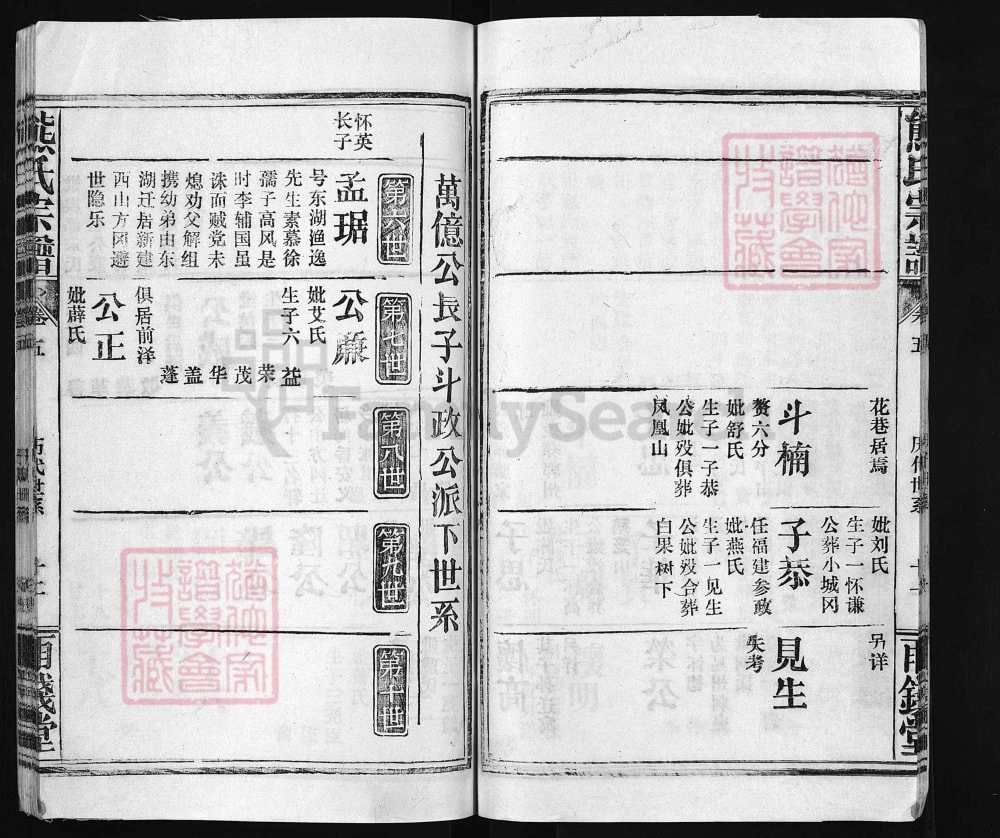 熊氏宗譜
卷五
花巷居焉
斗楠
赘六分
妣舒氏
生子一子恭
公妣殁俱葬
凤凰山
妣刘氏
生子一怀谦
公葬小城冈
子恭
任福建参政
妣燕氏
生子一见生
公妣殁合葬
白果树下
另详
見生
失考
萬億公長子斗政公派下世系
第六世
第七世
第八世
第九世
第十世
怀英
长子
孟琚
号东湖渔逸
先生素慕徐
孺子高风是
时李辅国虽
诛而贼党未
熄劝父解组
携幼弟由东
湖迁居新建
西山方冈避
世隐乐
公廉
妣艾氏
生子六 益
荣
茂
华
盖
蓬
俱居前泽
公正
妣薛氏
熊氏宗譜
卷五
历代世系
FamilySearch